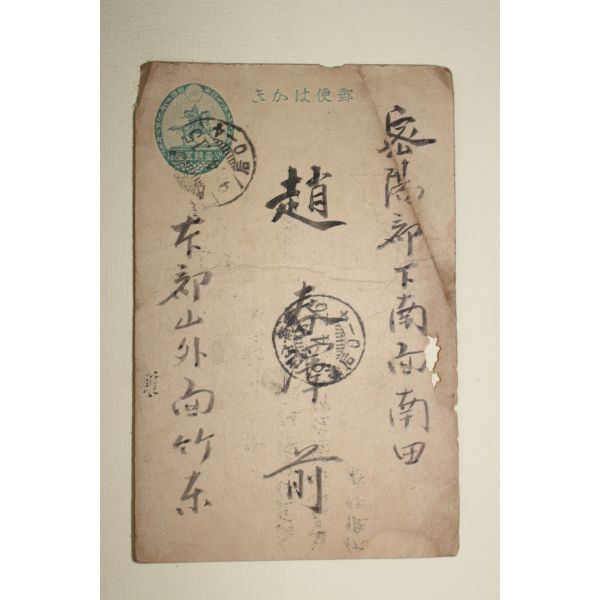 郵便はがき
密陽郡下南面南田
趙春澤前
本郡山外面竹東